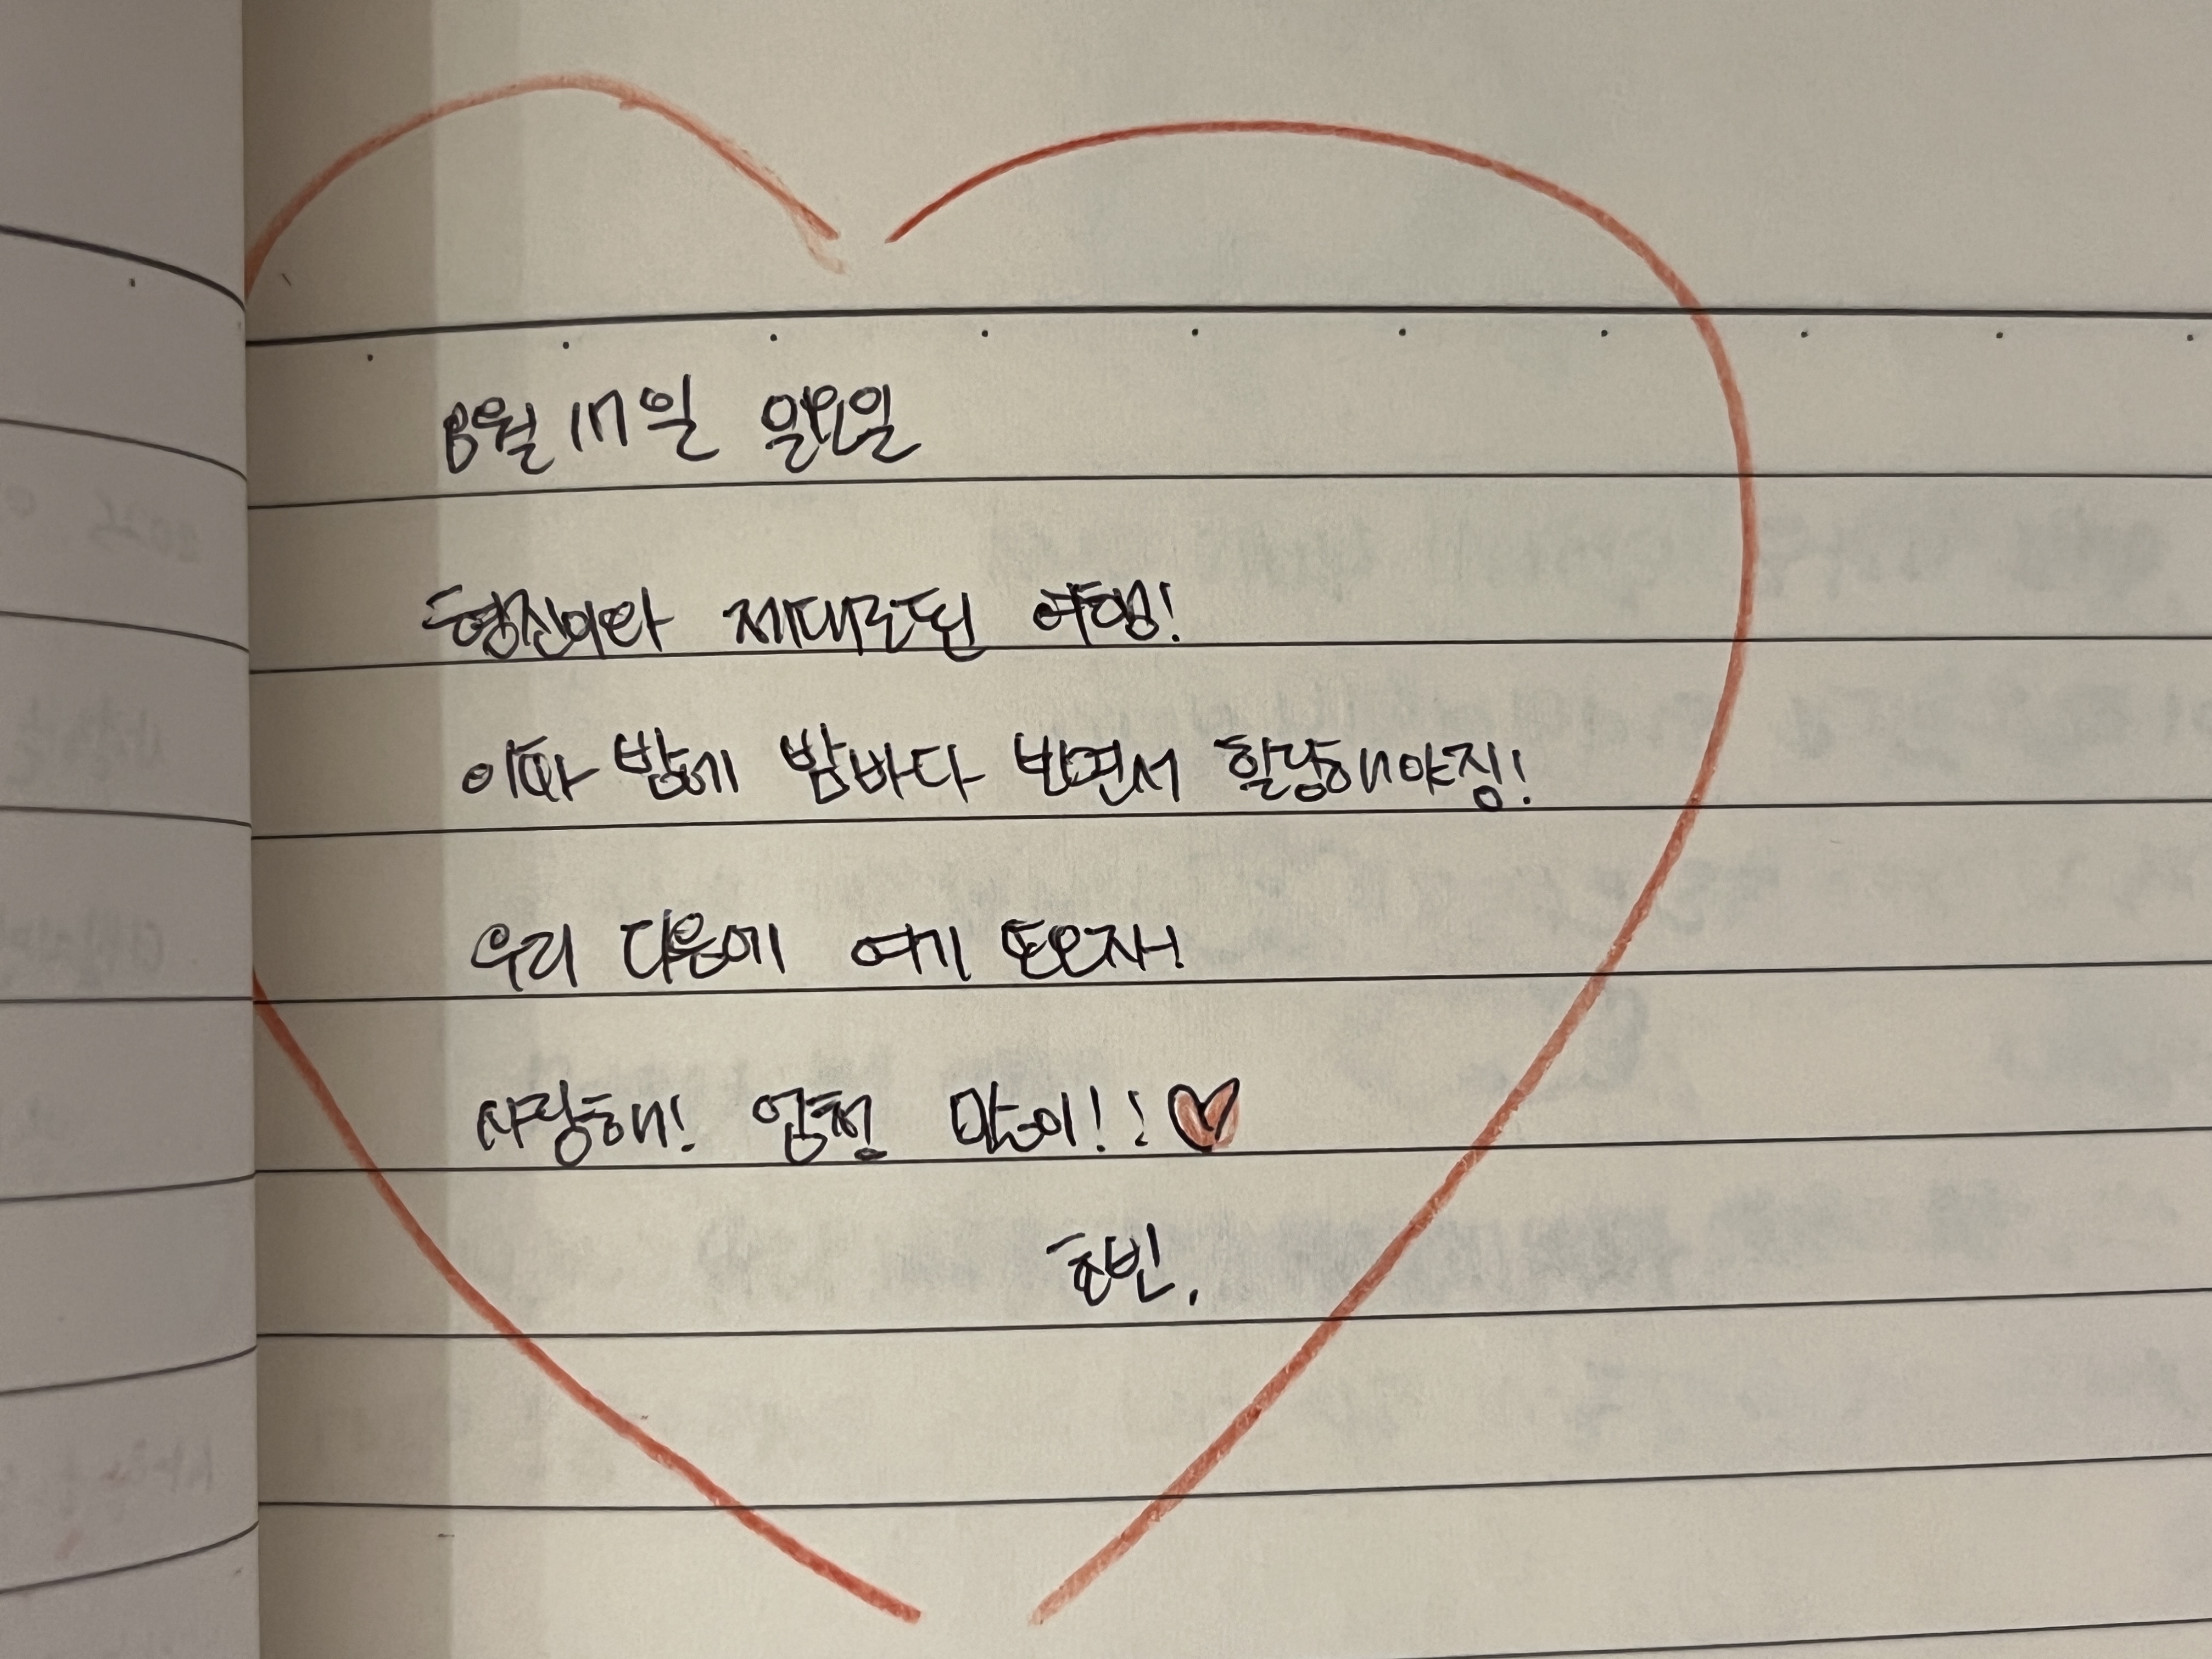 8월 17일 일요일
형진이와 제대로된 여행!
이따 밤에 밤바다 보면서 힐링해야징!
우리 다음에 여기 또오자!
사랑해! 엄청 많이!! ♡
효빈.